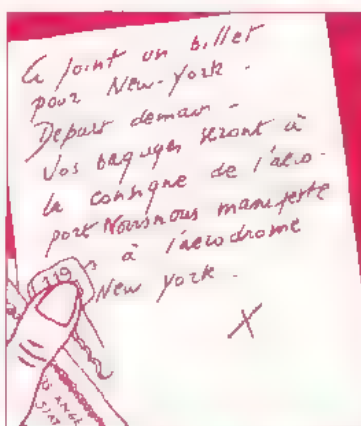 Ci joint un billet
pour New-York -
Depart demain -
Vos bagages seront à
la consigne de l'aéro-
port Nous nous manifeste
à l'aerodrome
New York -
X
119